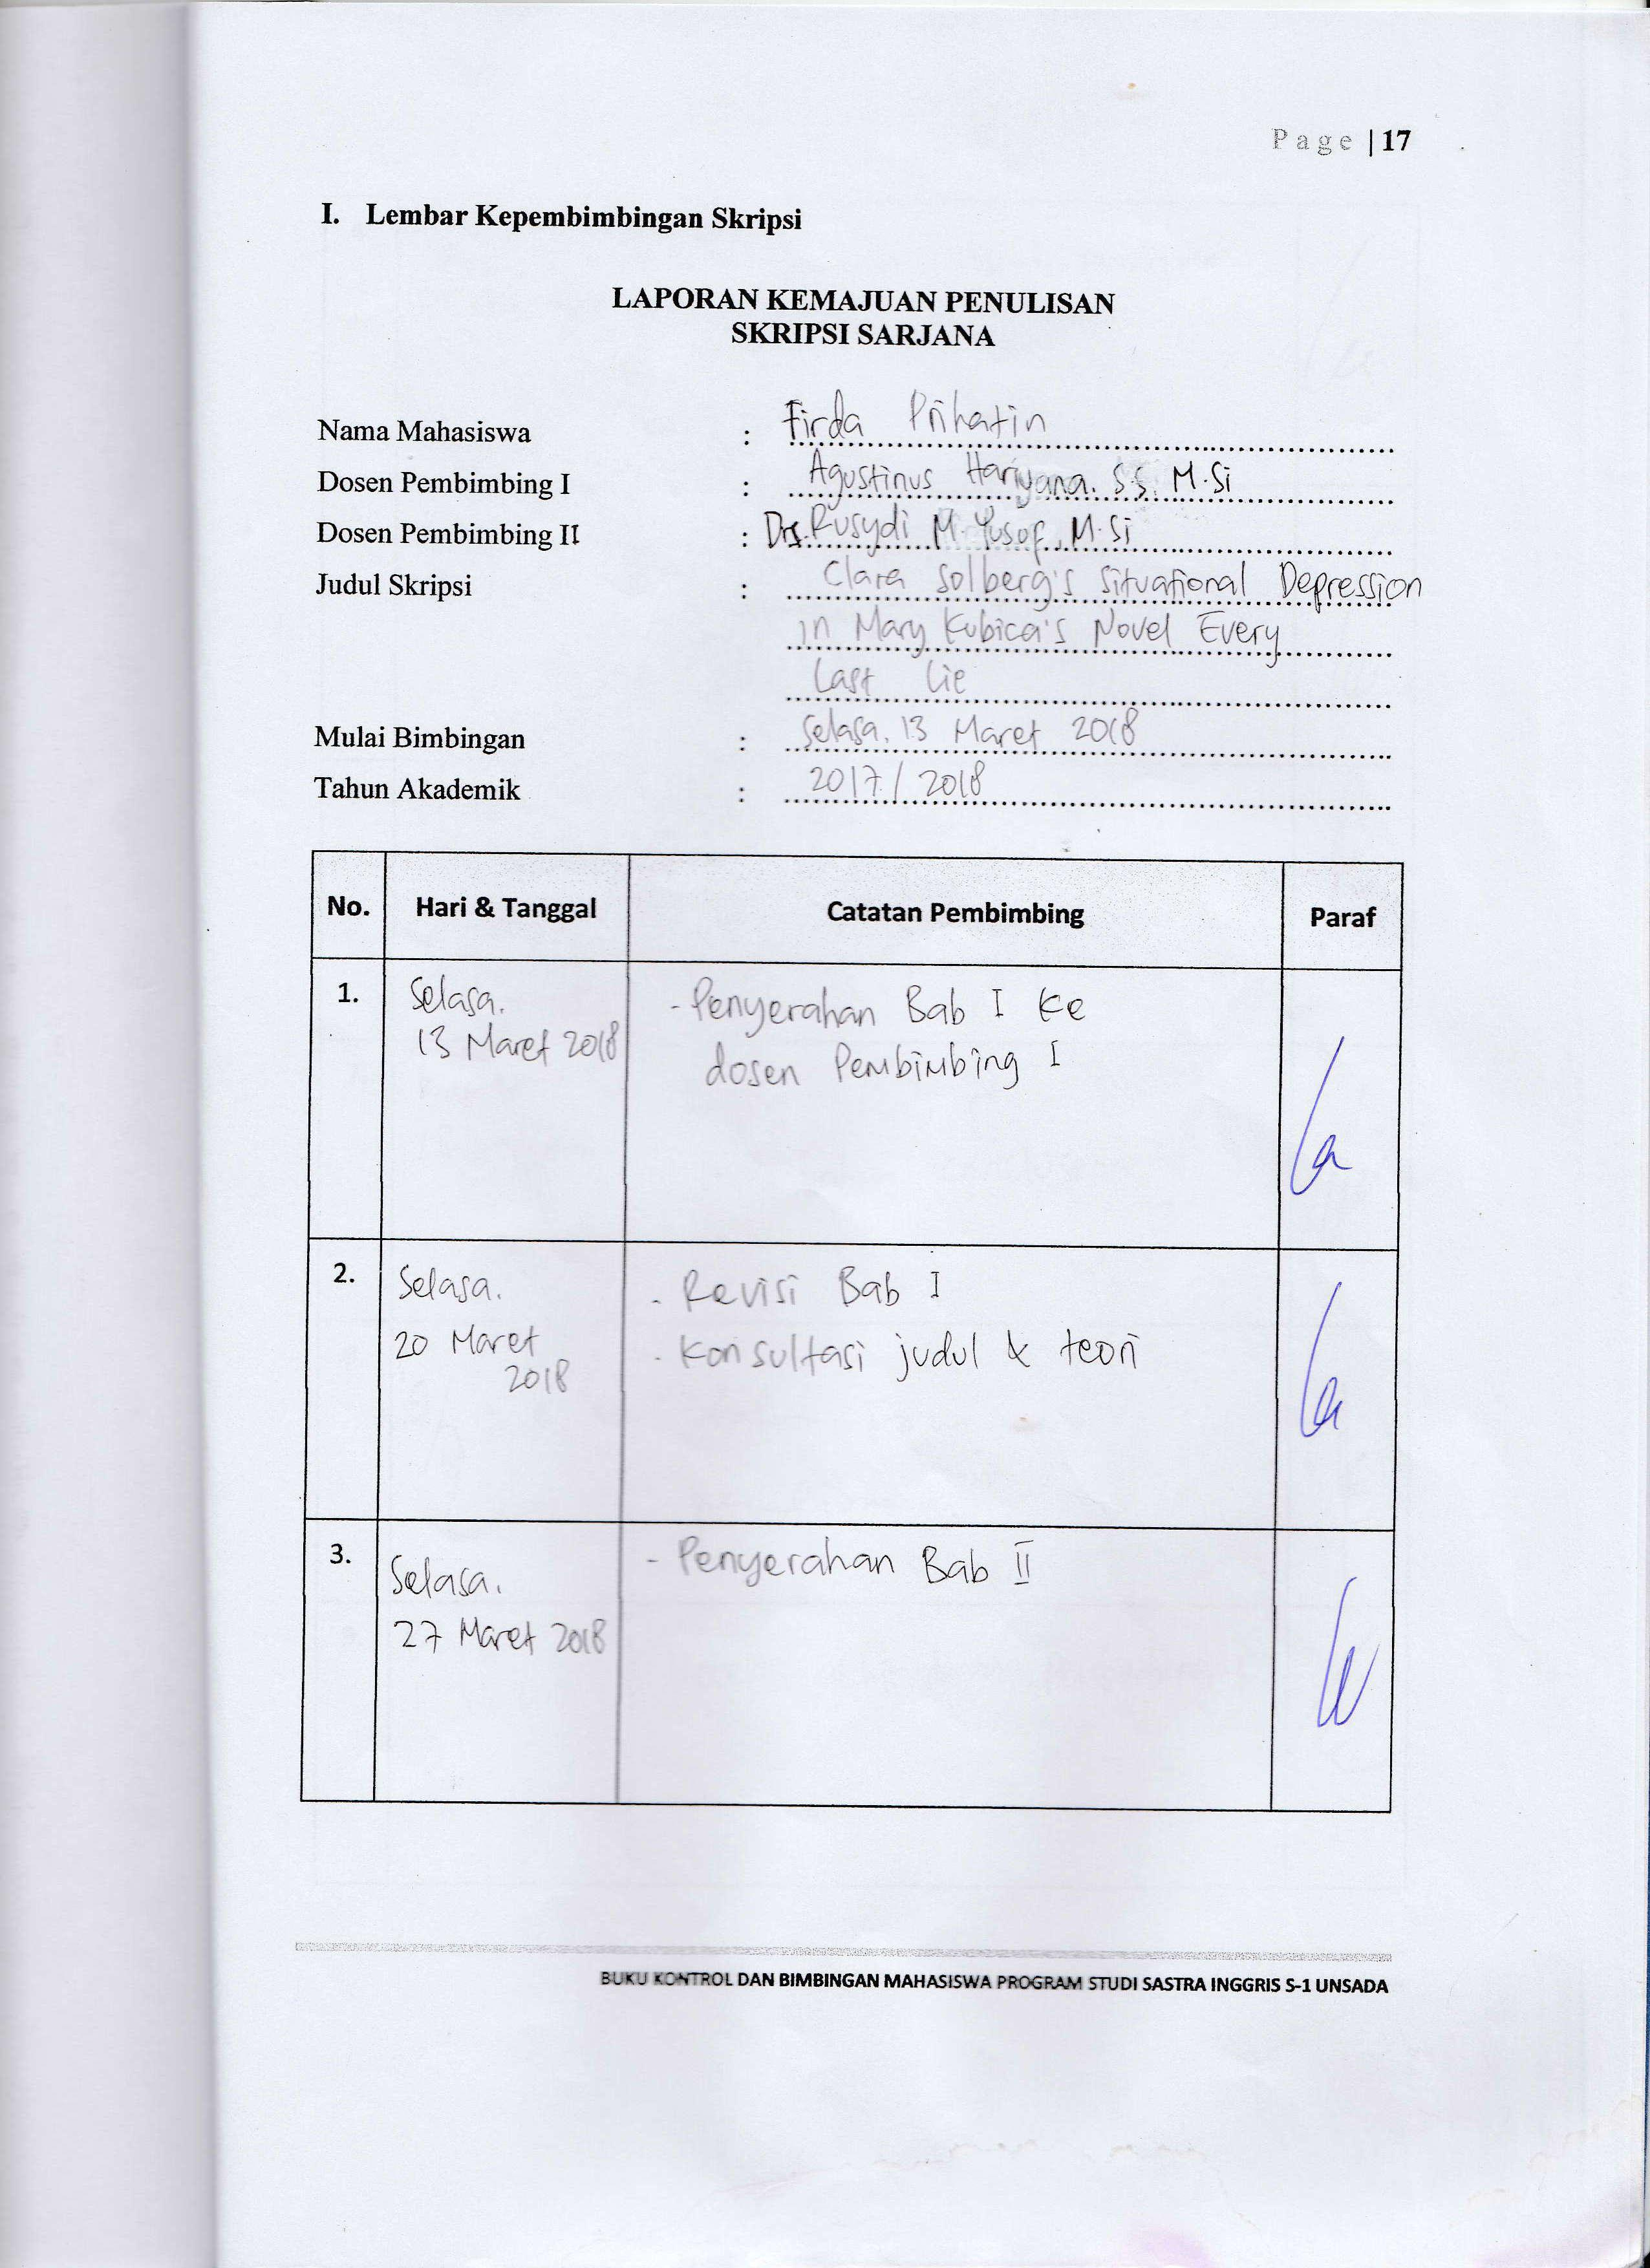 Page | 17
I. Lembar Kepembimbingan Skripsi
LAPORAN KEMAJUAN PENULISAN
SKRIPSI SARJANA
Nama Mahasiswa : Firda Prihatin
Dosen Pembimbing I : Agustinus Hariyana. S.S. M.Si
Dosen Pembimbing II : Drs. Rusydi M. Yusof, M.Si
Judul Skripsi : Clara Solberg's Situational Depression
in Mary Kubica's Novel Every
Last Lie
Mulai Bimbingan : Selasa, 13 Maret 2018
Tahun Akademik : 2017/2018
No. Hari & Tanggal Catatan Pembimbing Paraf
1. Selasa. - Penyerahan Bab I ke
13 Maret 2018 dosen Pembimbing I
2. Selasa. - Revisi Bab I
20 Maret - Konsultasi judul & teori
2018
3. Selasa. - Penyerahan Bab II
27 Maret 2018
BUKU KONTROL DAN BIMBINGAN MAHASISWA PROGRAM STUDI SASTRA INGGRIS S-1 UNSADA